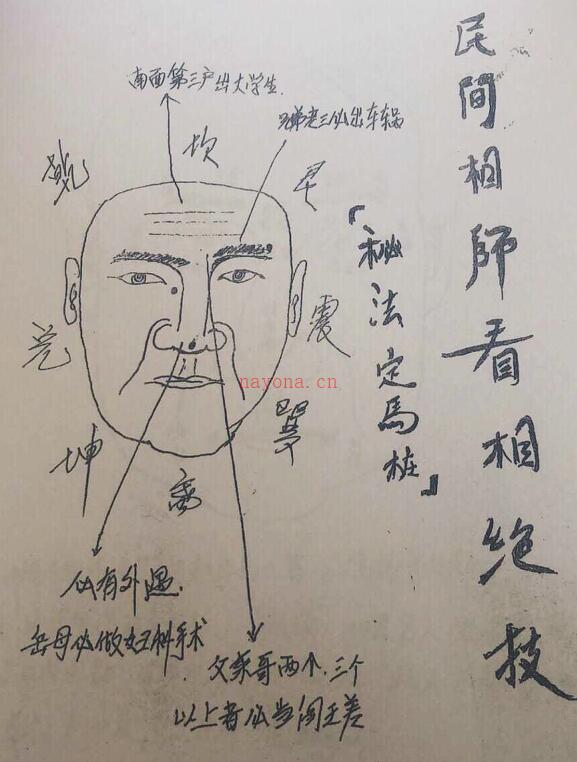 民间相師看相绝技
「秘法定馬桩」
南面第三户出大学生.
兄弟老三必出车祸
坎
乾
艮
震
兑
巽
坤
离
nayona.cn
必有外遇.
岳母必做妇科手术
父亲哥两个.三个
以上者必当阎王差